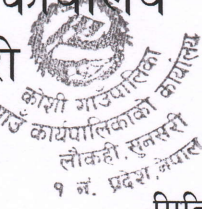 कार्यालय
री
कोशी गाउँपालिका
गाउँ कार्यपालिकाको कार्यालय
लौकही, सुनसरी
१ नं. प्रदेश, नेपाल